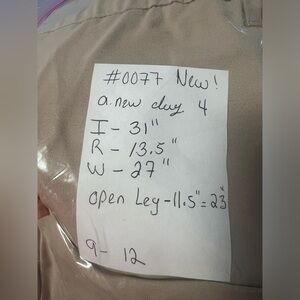 #0077 New!
a new day 4
I - 31"
R - 13.5"
W - 27"
open Leg - 11.5" = 23"
9 - 12